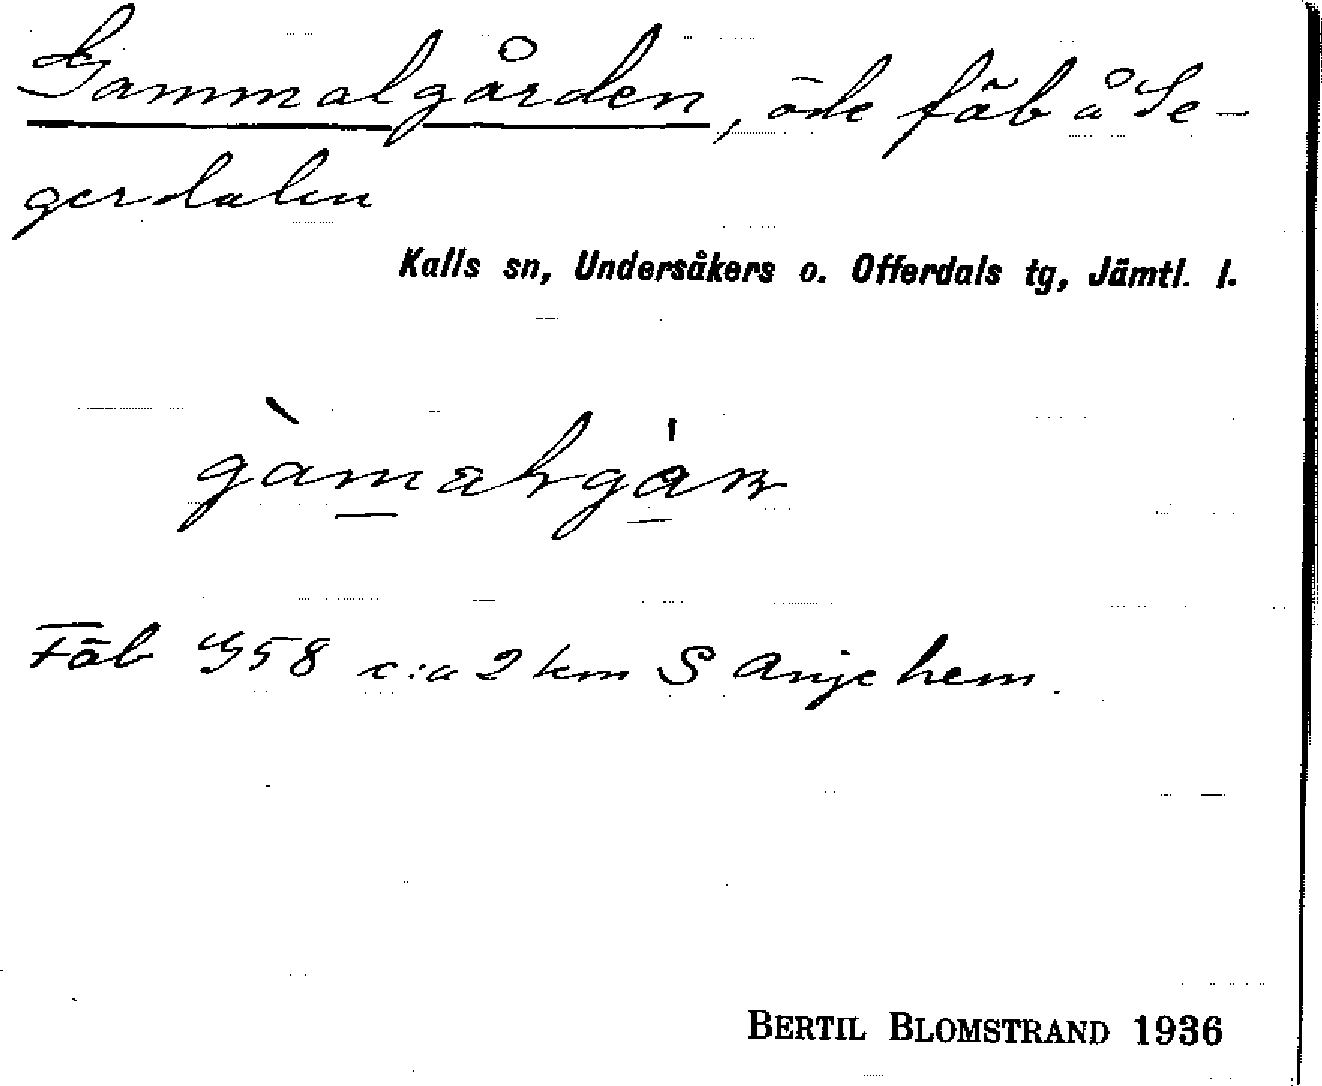 Gammalgården, öde fäb å Se-
gerdalen
Kalls sn, Undersåkers o. Offerdals tg, Jämtl. l.
Fäb 958 c:a 2 km S Anjehem.
BERTIL BLOMSTRAND 1936